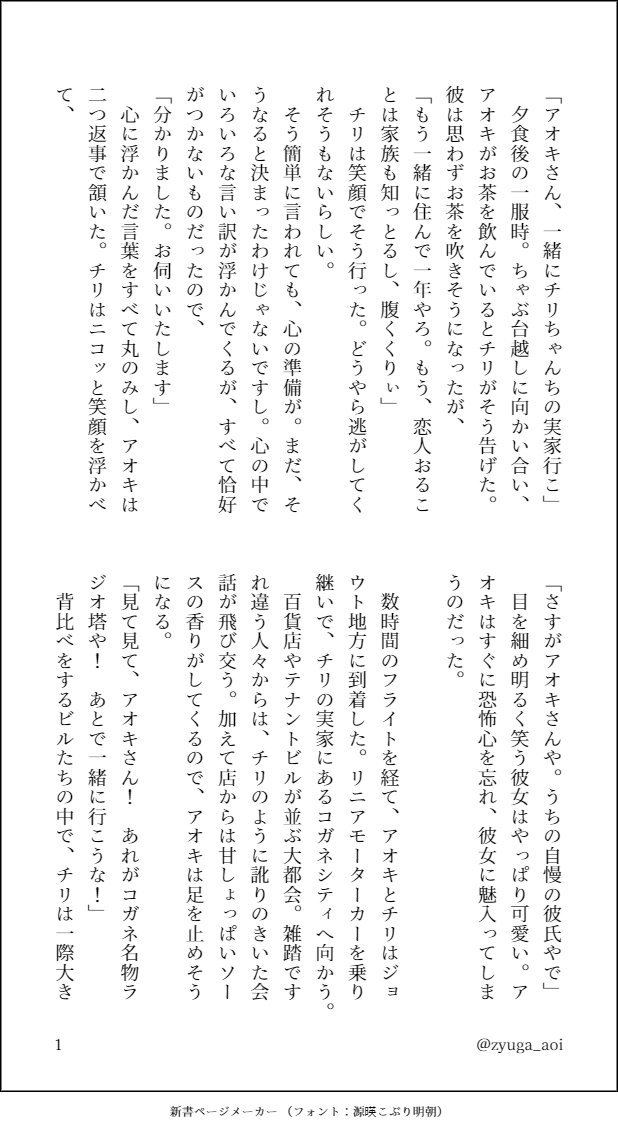 「アオキさん、一緒にチリちゃんちの実家行こ」
　夕食後の一服時。ちゃぶ台越しに向かい合い、
アオキがお茶を飲んでいるとチリがそう告げた。
彼は思わずお茶を吹きそうになったが、
「もう一緒に住んで一年やろ。もう、恋人おるこ
とは家族も知っとるし、腹くくりぃ」
　チリは笑顔でそう行った。どうやら逃がしてく
れそうもないらしい。
　そう簡単に言われても、心の準備が。まだ、そ
うなると決まったわけじゃないですし。心の中で
いろいろな言い訳が浮かんでくるが、すべて恰好
がつかないものだったので、
「分かりました。お伺いいたします」
　心に浮かんだ言葉をすべて丸のみし、アオキは
二つ返事で頷いた。チリはニコッと笑顔を浮かべ
て、
「さすがアオキさんや。うちの自慢の彼氏やで」
　目を細め明るく笑う彼女はやっぱり可愛い。ア
オキはすぐに恐怖心を忘れ、彼女に魅入ってしま
うのだった。
　数時間のフライトを経て、アオキとチリはジョ
ウト地方に到着した。リニアモーターカーを乗り
継いで、チリの実家にあるコガネシティへ向かう。
　百貨店やテナントビルが並ぶ大都会。雑踏です
れ違う人々からは、チリのように訛りのきいた会
話が飛び交う。加えて店からは甘しょっぱいソー
スの香りがしてくるので、アオキは足を止めそう
になる。
「見て見て、アオキさん！　あれがコガネ名物ラ
ジオ塔や！　あとで一緒に行こうな！」
　背比べをするビルたちの中で、チリは一際大き
@zyuga_aoi
1
新書ページメーカー（フォント：源暎こぶり明朝）